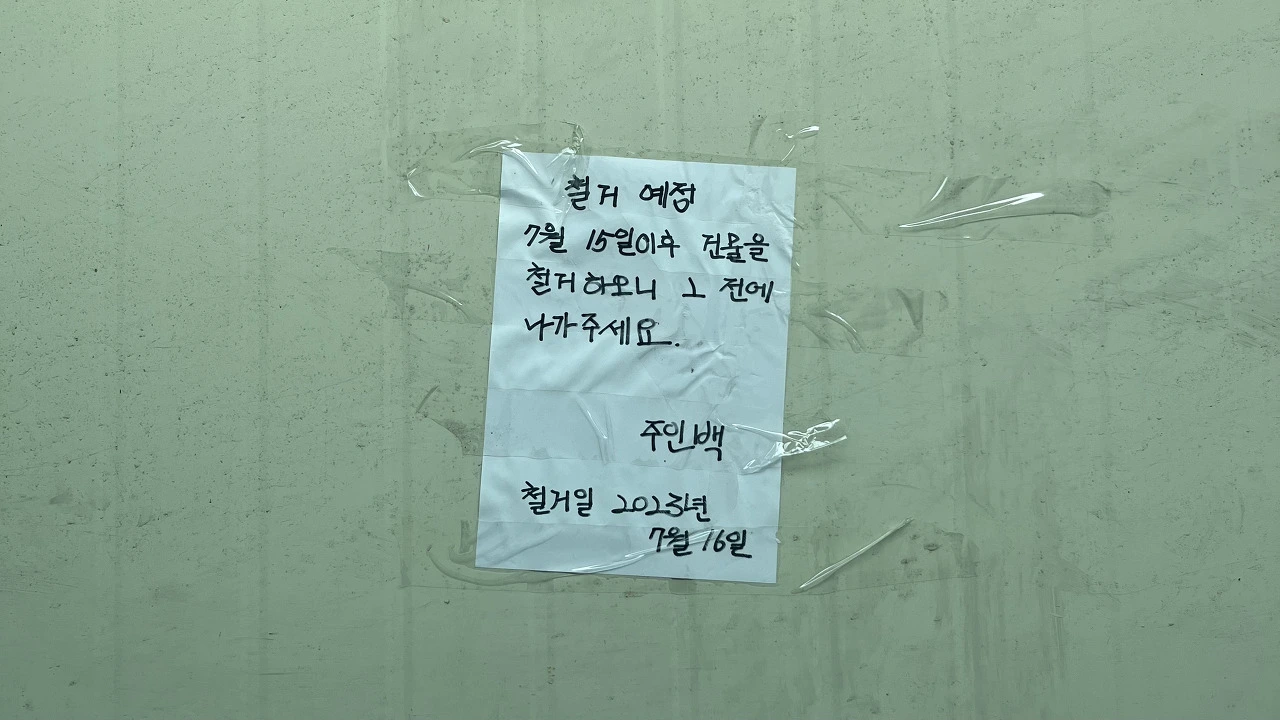 철거 예정
7월 15일이후 건물을
철거하오니 그 전에
나가주세요.
주인백
철거일 2023년
7월 16일